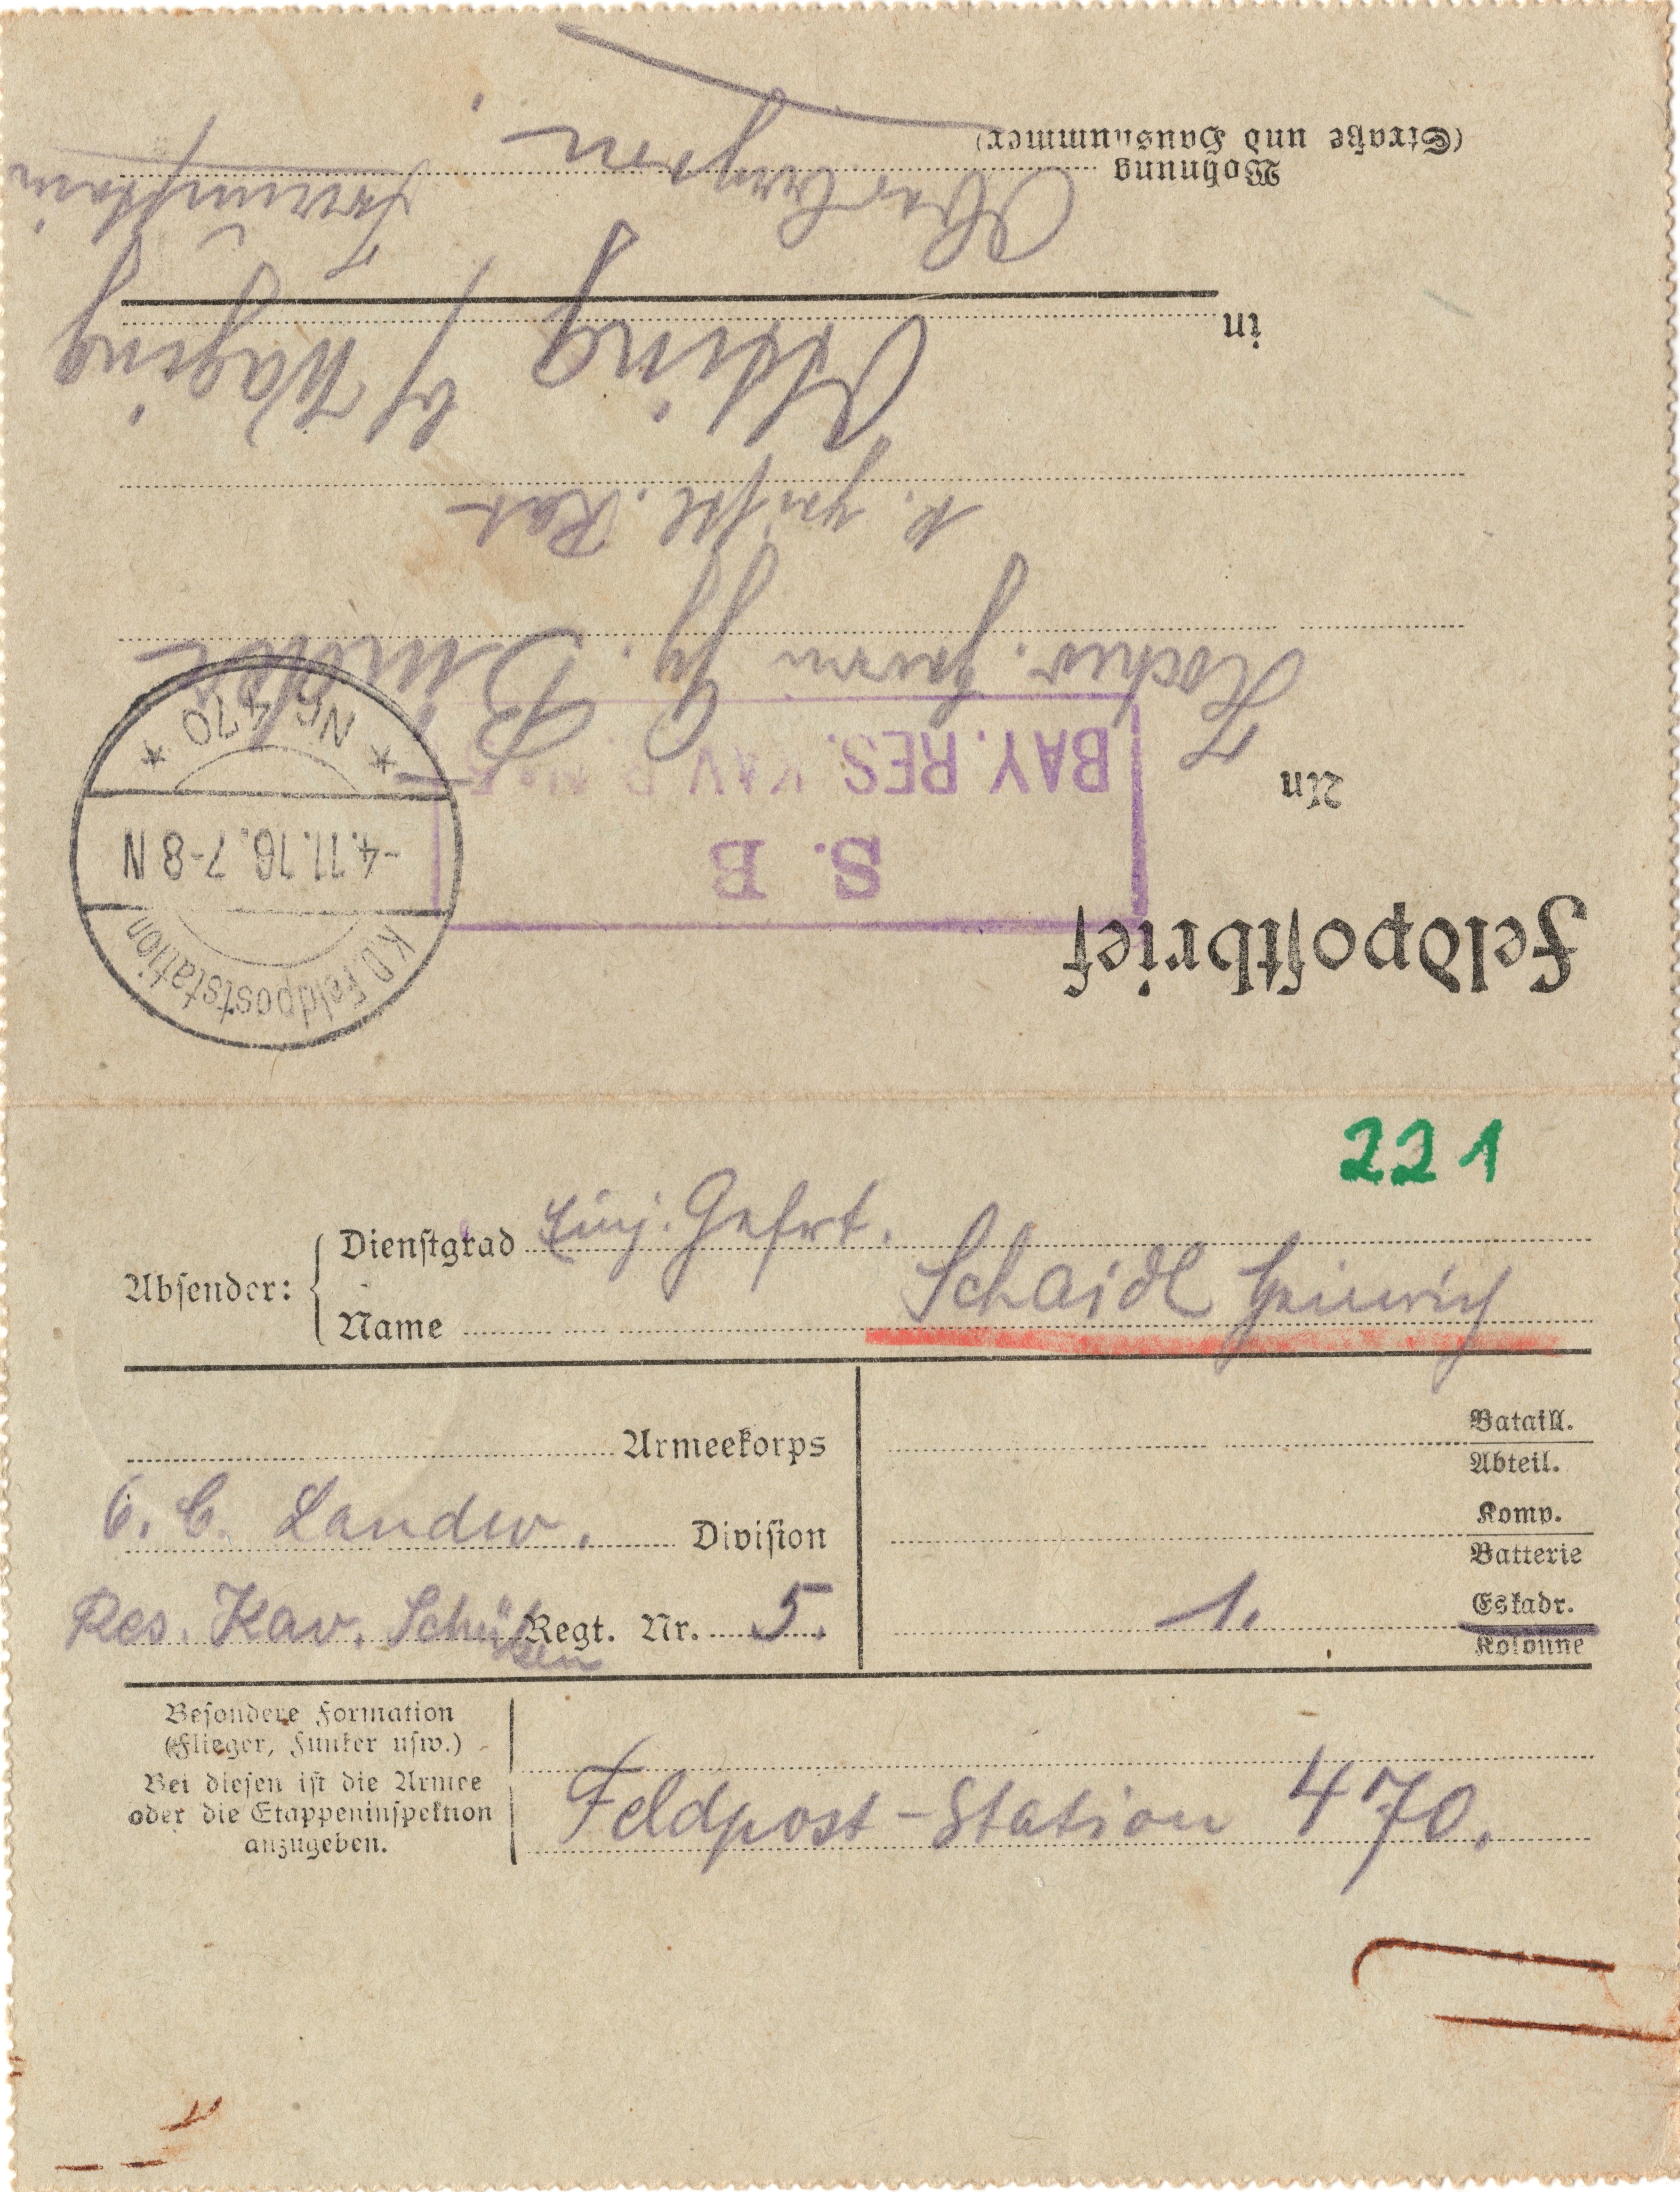 Feldpostbrief
S. B
BAY. RES. KAV. R. No. 5
K.D. Feldpoststation
-4.11.16. 7-8 N
* Nr. 470 *
An
Hochw. Herrn Gg.
k. geistl. Rat
in
Otting b/ Waging
Traunstein
Oberbayern.
Wohnung
(Straße und Hausnummer)
221
Absender:
Dienstgrad Einj. Gefrt.
Name Schaidl Heinrich
Armeekorps
6. b. Landw. Division
Res. Kav. Schützen Regt. Nr. 5.
Bataill.
Abteil.
Komp.
Batterie
1. Eskadr.
Kolonne
Besondere Formation
(Flieger, Funker usw.)
Bei diesen ist die Armee
oder die Etappeninspektion
anzugeben.
Feldpost-Station 470.